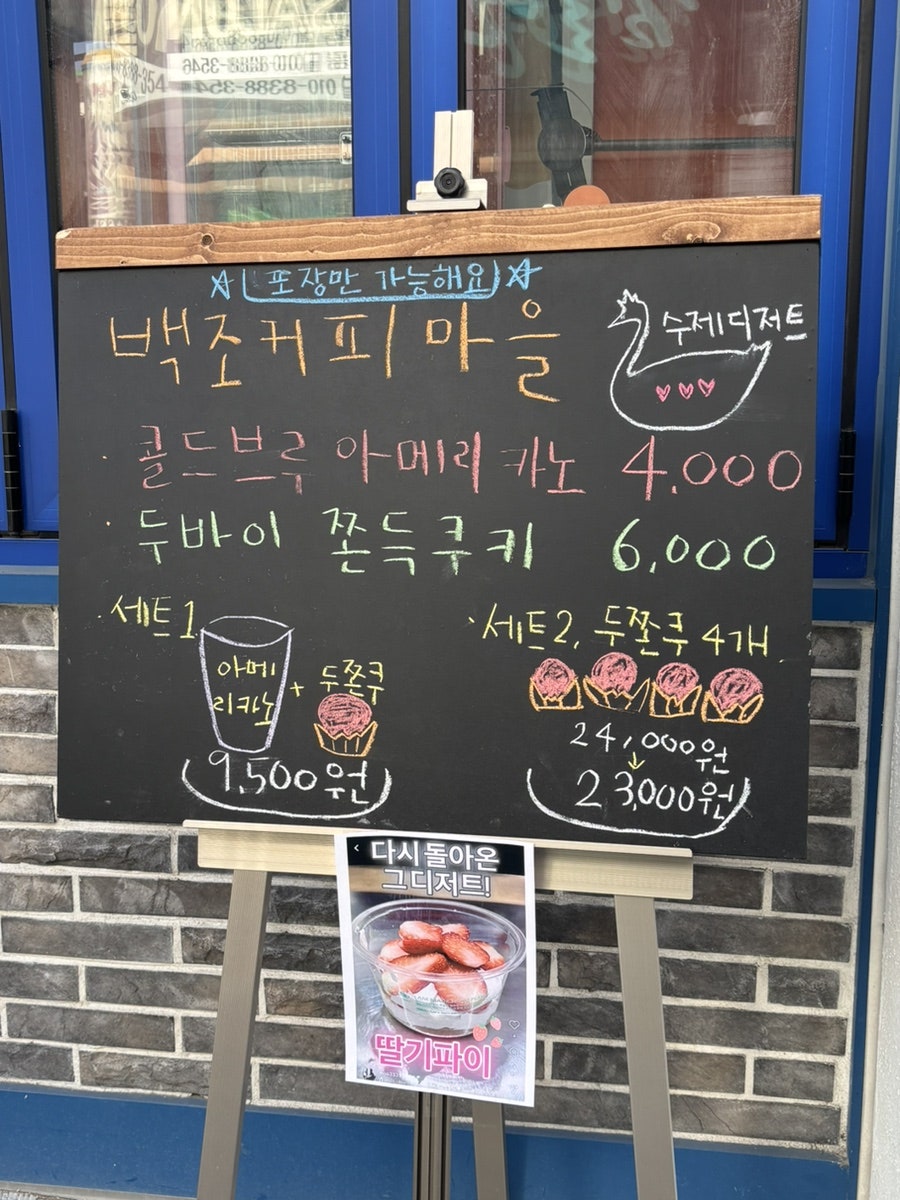 포장만 가능해요
백조커피마을
수제디저트
콜드브루 아메리카노 4,000
두바이 쫀득쿠키 6,000
세트1
아메
리카노
+ 두쫀쿠
9,500원
세트2, 두쫀쿠 4개
24,000원
↓
23,000원
다시 돌아온
그디저트!
딸기파이